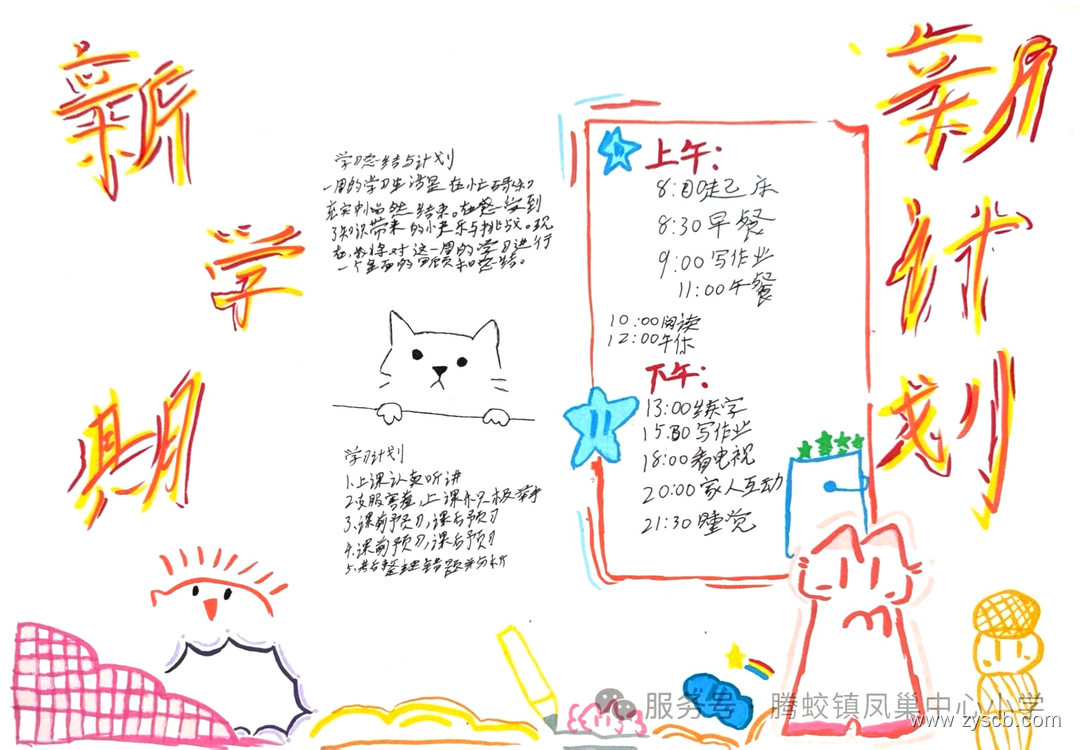 新学期
新计划
学习总结与计划
一周的学习生活是在忙碌和
充实中悄然结束。在感受到
了知识带来的快乐与挑战。现
在,我将对这一周的学习进行
一个全面的回顾和总结。
学习计划
1.上课认真听讲
2.克服害羞,上课积极举手
3.课前预习,课后预习
4.课前预习,课后预习
5.整理错题并分析
上午:
8:00起床
8:30早餐
9:00写作业
11:00午餐
10:00阅读
12:00午休
下午:
13:00练字
15:30写作业
18:00看电视
20:00家人互动
21:30睡觉
服务号·腾蛟镇凤巢中心小学
www.zyscb.com